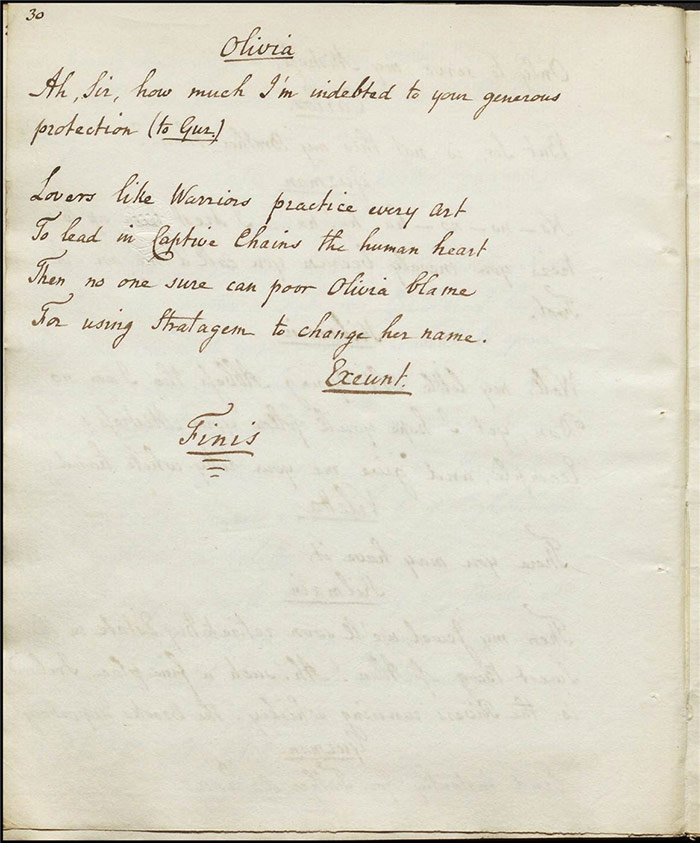 30
Olivia
Ah, Sir, how much I'm indebted to your generous
protection (to Gur.)
Lovers like Warriors practice every art
To lead in Captive Chains the human heart
Then no one sure can poor Olivia blame
For using Stratagem to change her name.
Exeunt.
Finis